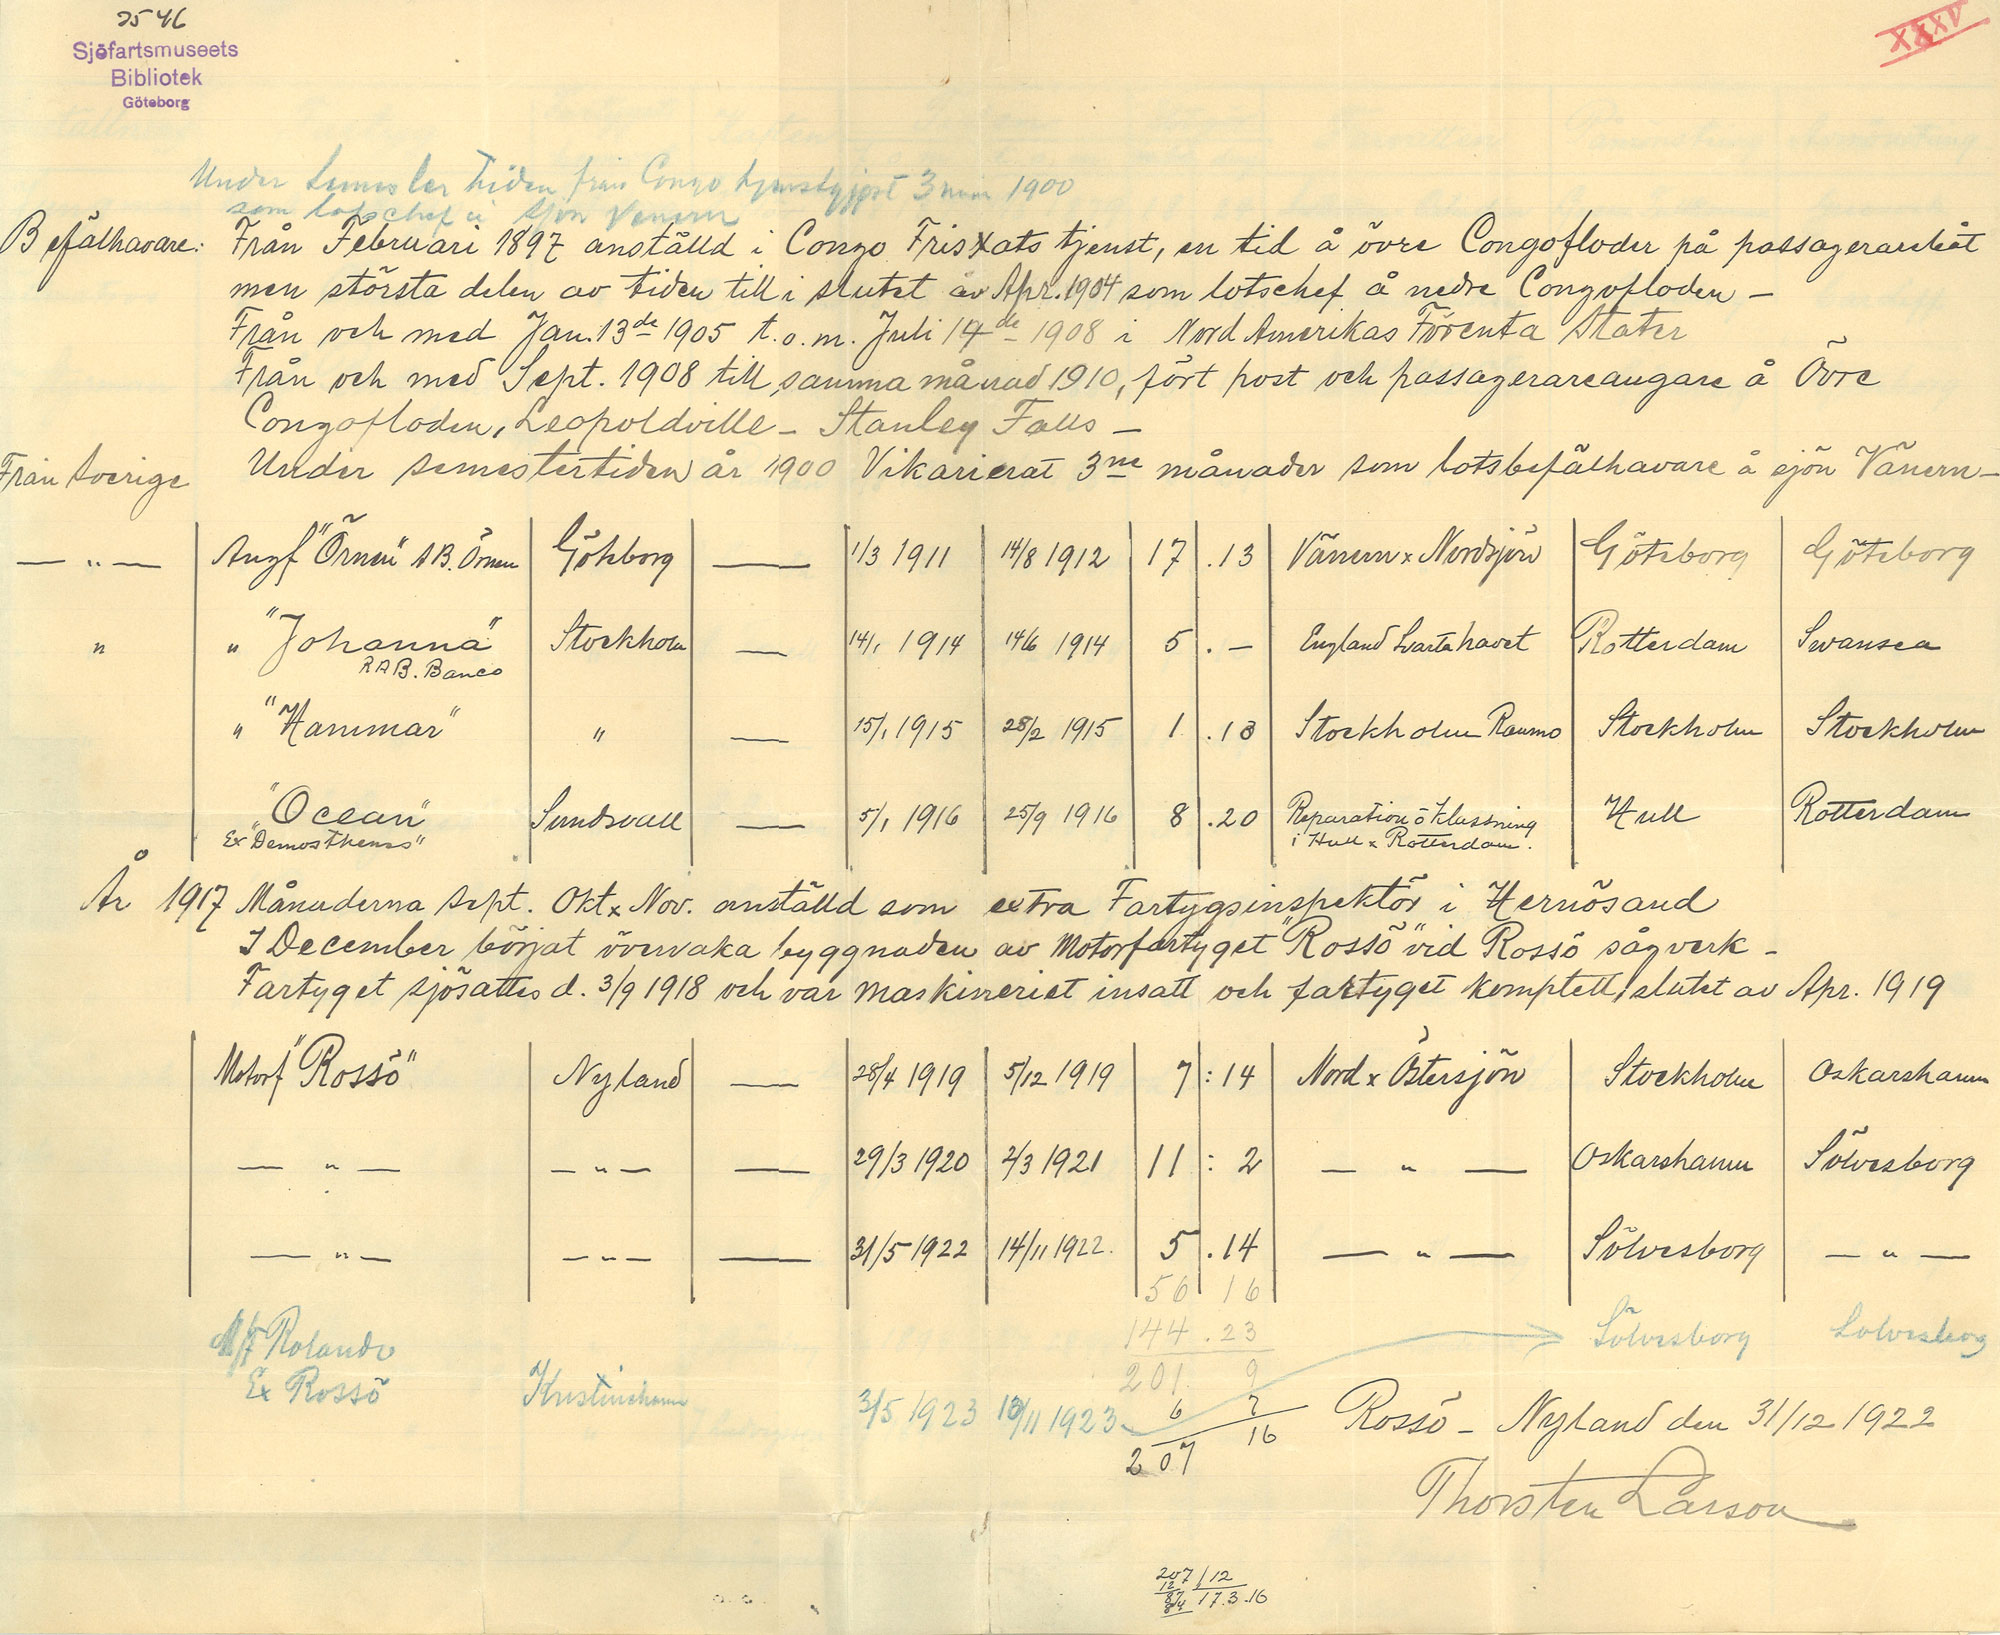 2546
Sjöfartsmuseets
Bibliotek
Göteborg
XXXV
Under Semester tiden från Congo 3 mån 1900
som lotschef å sjön Venern
Befälhavare: Från Februari 1897 anställd i Congo Fristats tjenst, en tid å övre Congofloden på passagerarebåt
men största delen av tiden till i slutet av Apr. 1904 som lotschef å nedre Congofloden –
Från och med Jan. 13de 1905 t.o.m. Juli 14de 1908 i Nord Amerikas Förenta Stater
Från och med Sept. 1908 till samma månad 1910, fört post och passagerareångare å Övre
Congofloden, Leopoldville – Stanley Falls –
Från Sverige Under semestertiden år 1900 Vikarierat 3ne månader som lotsbefälhavare å sjön Vänern –
— " — Angf "Örnen" AB. Örnen Göteborg — 1/3 1911 14/8 1912 17 . 13 Vänern x Nordsjön Göteborg Göteborg
" " "Johanna" Stockholm — 14/1 1914 14/6 1914 5 . – England Svarta havet Rotterdam Swansea
RAB. Banco
" "Hammar" " — 15/1 1915 28/2 1915 1 . 13 Stockholm Raumo Stockholm Stockholm
"Ocean" Sundsvall — 5/1 1916 25/9 1916 8 . 20 Reparation o Klassning Hull Rotterdam
Ex "Demosthenes" i Hull x Rotterdam.
År 1917 Månaderna Sept. Okt x Nov. anställd som extra Fartygsinspektör i Hernösand
I December börjat övervaka byggnaden av Motorfartyget "Rossö" vid Rossö sågverk –
Fartyget sjösattes d. 3/9 1918 och var maskineriet insatt och fartyget komplett i slutet av Apr. 1919
Motorf "Rossö" Nyland — 28/4 1919 5/12 1919 7 : 14 Nord x Östersjön Stockholm Oskarshamn
— " — — " — — 29/3 1920 2/3 1921 11 : 2 — " — Oskarshamn Sölvesborg
— " — — " — — 31/5 1922 14/11 1922. 5 . 14 — " — Sölvesborg — " —
56 16
M/F Rolando 144 . 23 Sölvesborg Sölvesborg
Ex Rossö Kristinehamn 201 9
3/5 1923 10/11 1923 6 7 Rossö – Nyland den 31/12 1922
207 16
Thorsten Larson
207 / 12
12 17.3.16
87
84